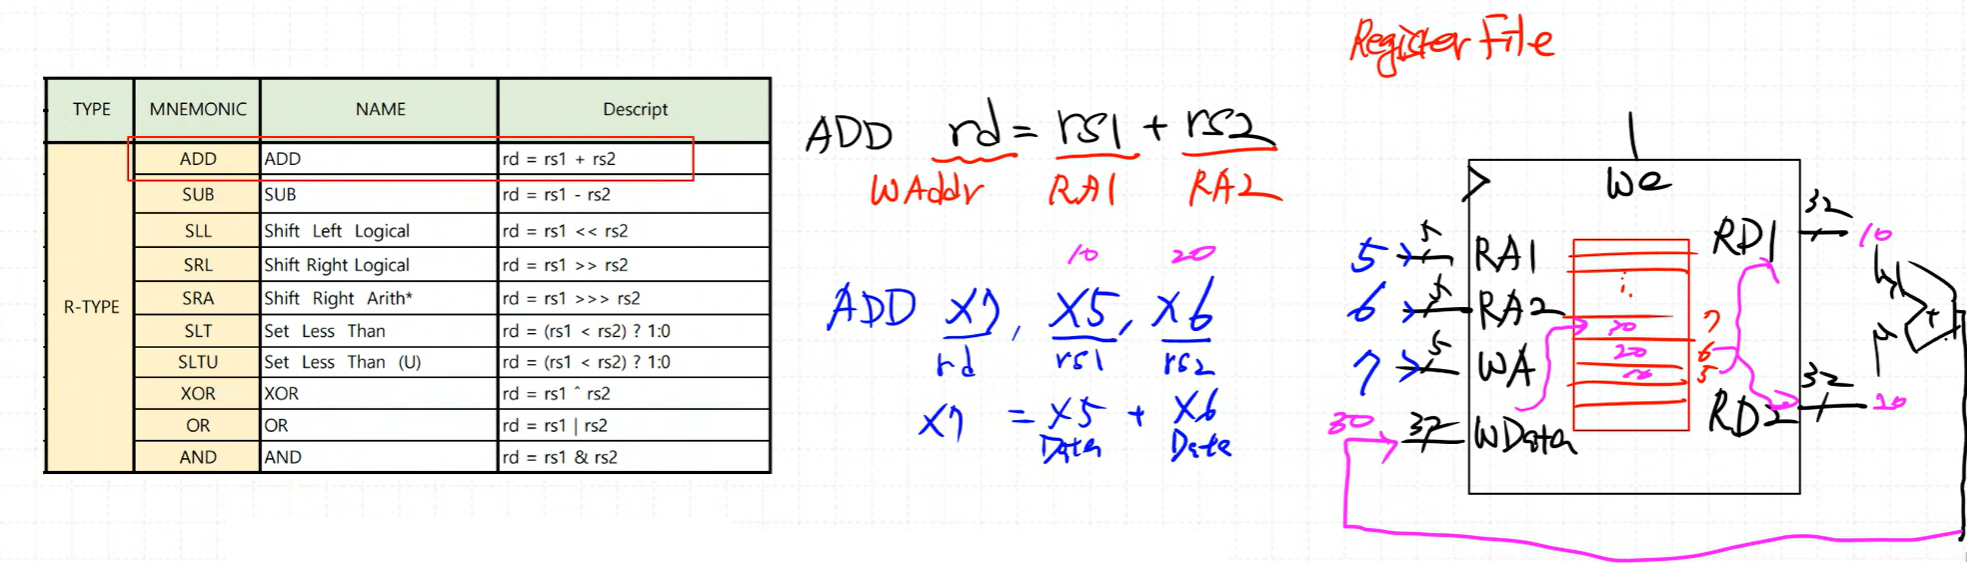 Register File
TYPE MNEMONIC NAME Descript
R-TYPE
ADD ADD rd = rs1 + rs2
SUB SUB rd = rs1 - rs2
SLL Shift Left Logical rd = rs1 << rs2
SRL Shift Right Logical rd = rs1 >> rs2
SRA Shift Right Arith* rd = rs1 >>> rs2
SLT Set Less Than rd = (rs1 < rs2) ? 1:0
SLTU Set Less Than (U) rd = (rs1 < rs2) ? 1:0
XOR XOR rd = rs1 ^ rs2
OR OR rd = rs1 | rs2
AND AND rd = rs1 & rs2
ADD rd = rs1 + rs2
WAddr RA1 RA2
10 20
ADD X7, X5, X6
rd rs1 rs2
X7 = X5 + X6
Data Data
We
5 5 RA1
6 5 RA2
7 5 WA
30 32 WData
30 7
20 6
5
RD1 32 10
RD2 32 20
+